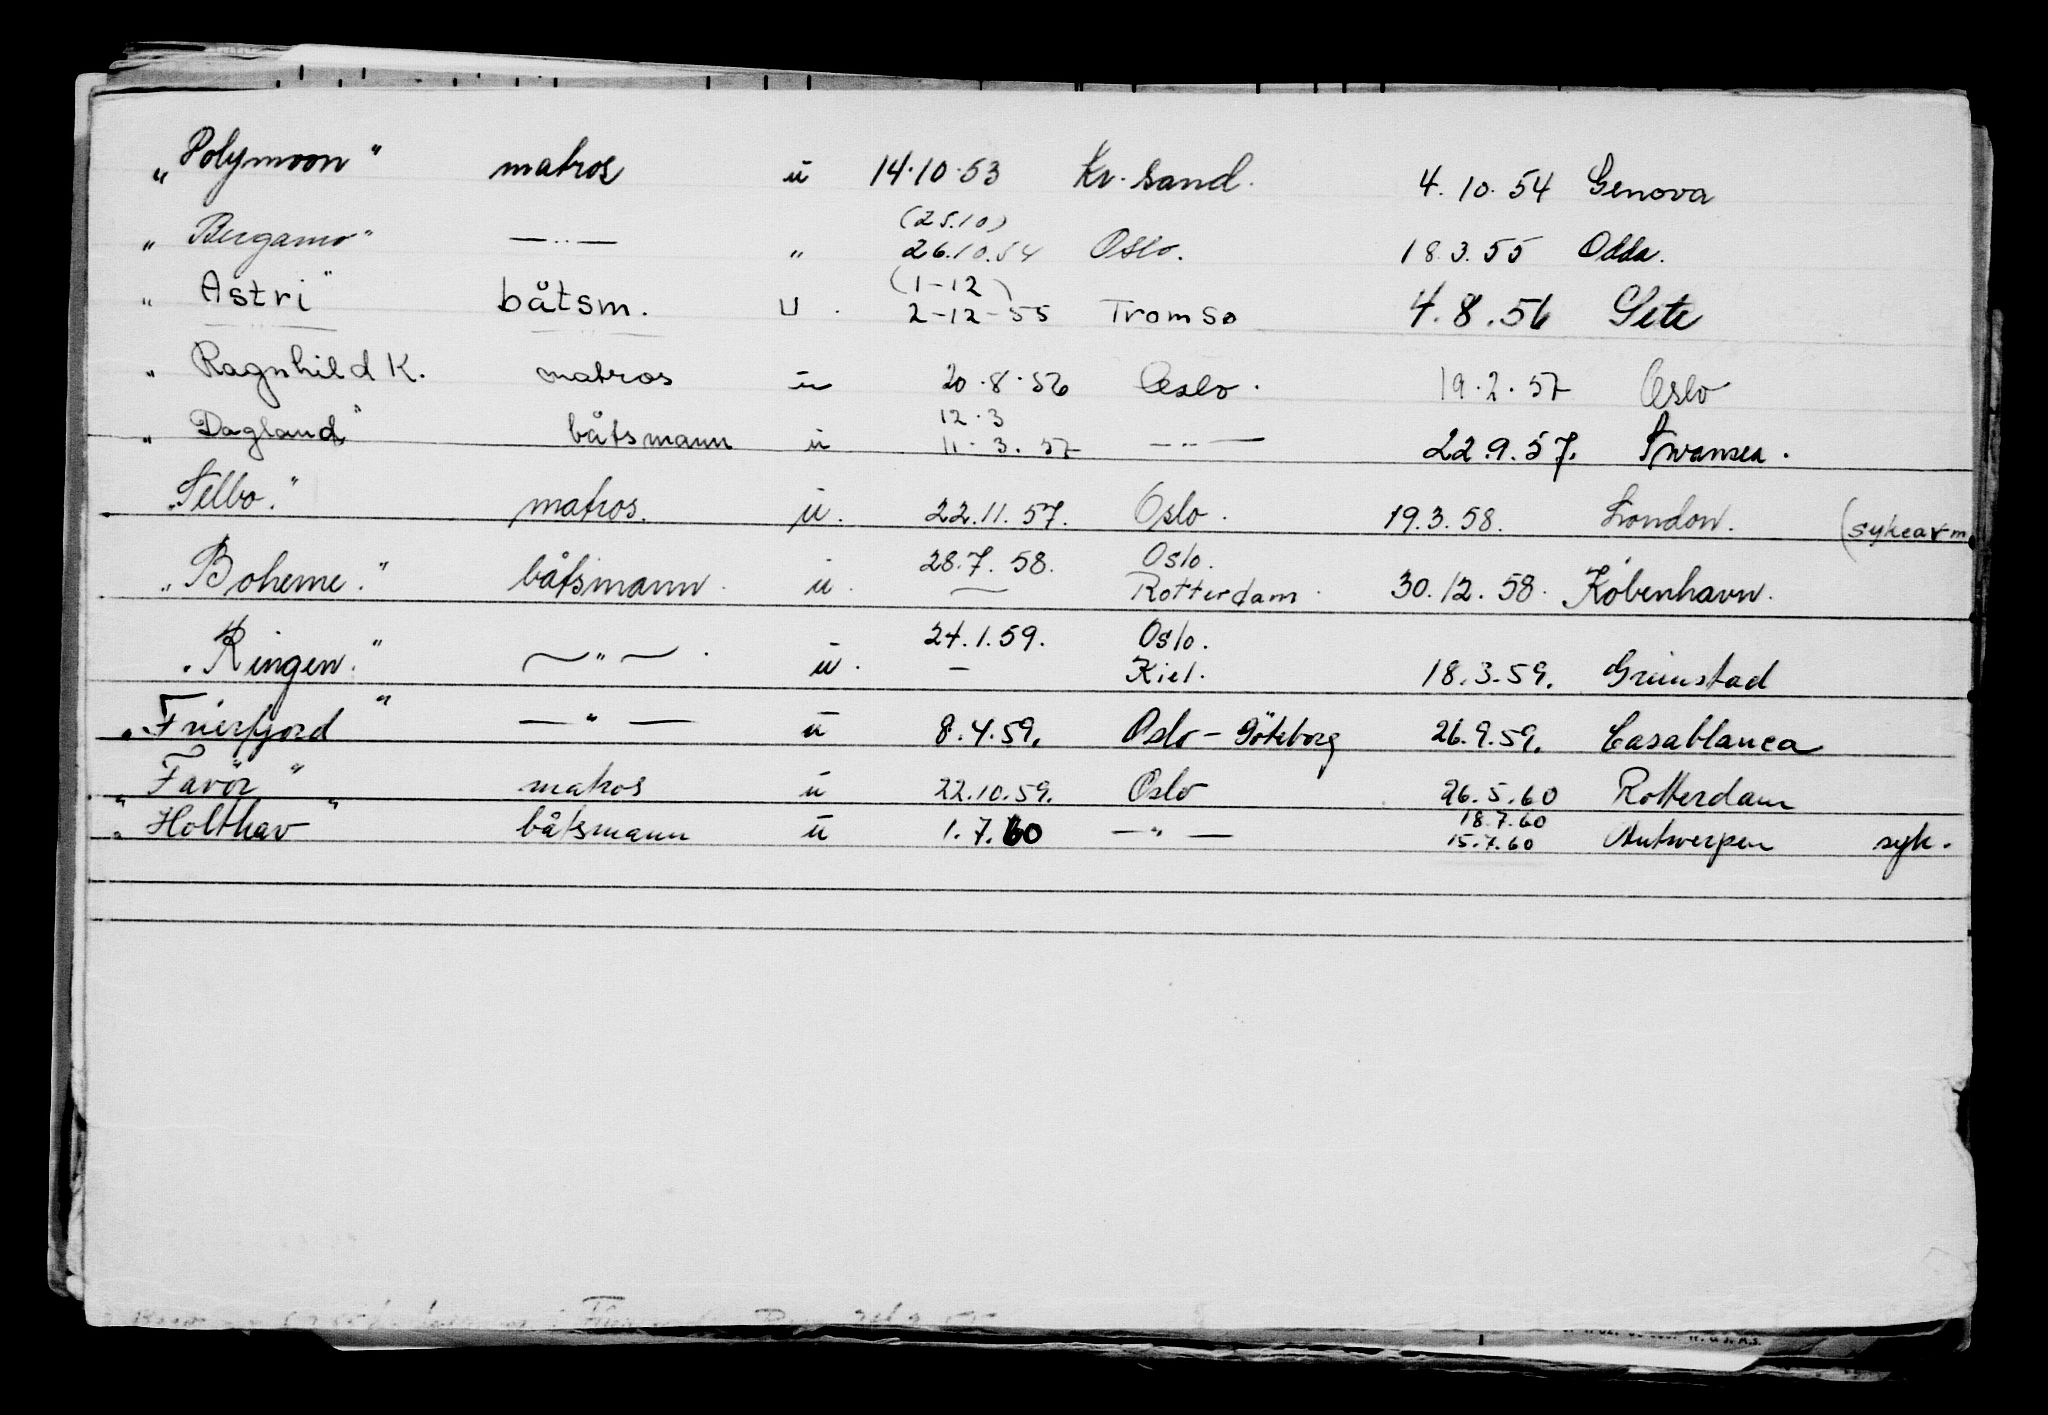 „Polymoon" matros u 14.10.53 Kr.sand. 4.10.54 Genova
(25.10)
„Bergamo" —"— " 26.10.54 Oslo. 18.3.55 Odda.
(1-12)
„Astri" båtsm. u. 2-12-55 Tromsø 4.8.56 Sete
„Ragnhild K. matros u 20.8.56 Oslo. 19.2.57 Oslo
12.3
„Dagland" båtsmann u 11.3.57 —"— 22.9.57. Swansea.
„Selbo." matros. u. 22.11.57. Oslo. 19.3.58. London. (sykearm
28.7.58. Oslo.
„Boheme." båtsmann. u. — Rotterdam. 30.12.58. København.
24.1.59. Oslo.
„Ringen." —"—. u. — Kiel. 18.3.59. Grimstad
„Frierfjord" —"— u 8.4.59. Oslo - Göteborg 26.9.59. Casablanca
„Favör" matros u 22.10.59. Oslo 26.5.60 Rotterdam
18.7.60
„Holthav" båtsmann u 1.7.60 —"— 15.7.60 Antwerpen syk.